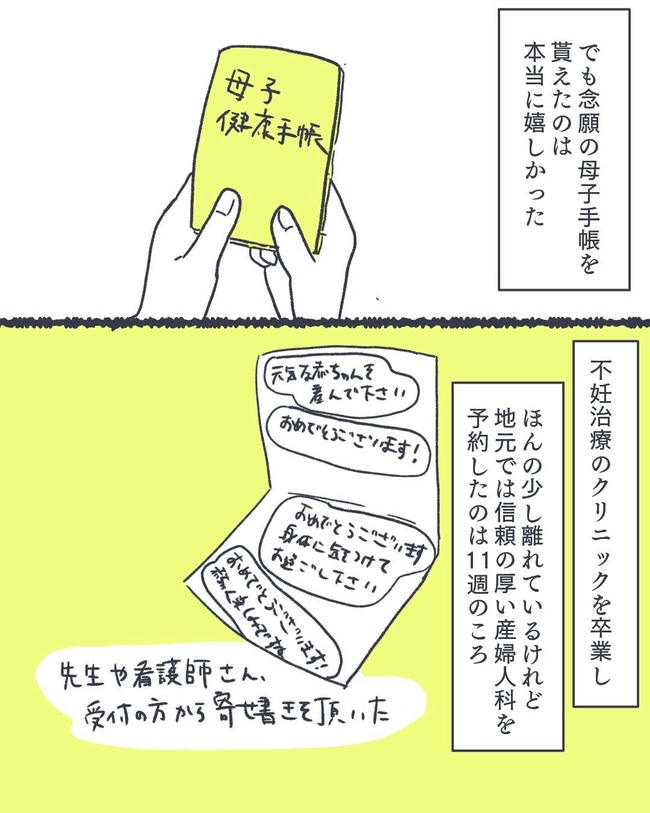 でも念願の母子手帳を
貰えたのは
本当に嬉しかった
母子
健康手帳
不妊治療のクリニックを卒業し
ほんの少し離れているけれど
地元では信頼の厚い産婦人科を
予約したのは11週のころ
元気な赤ちゃんを
産んで下さい
おめでとうございます!
おめでとうございます
身体に気をつけて
お過ごし下さい
おめでとうございます!
先生や看護師さん、
受付の方から寄せ書きを頂いた